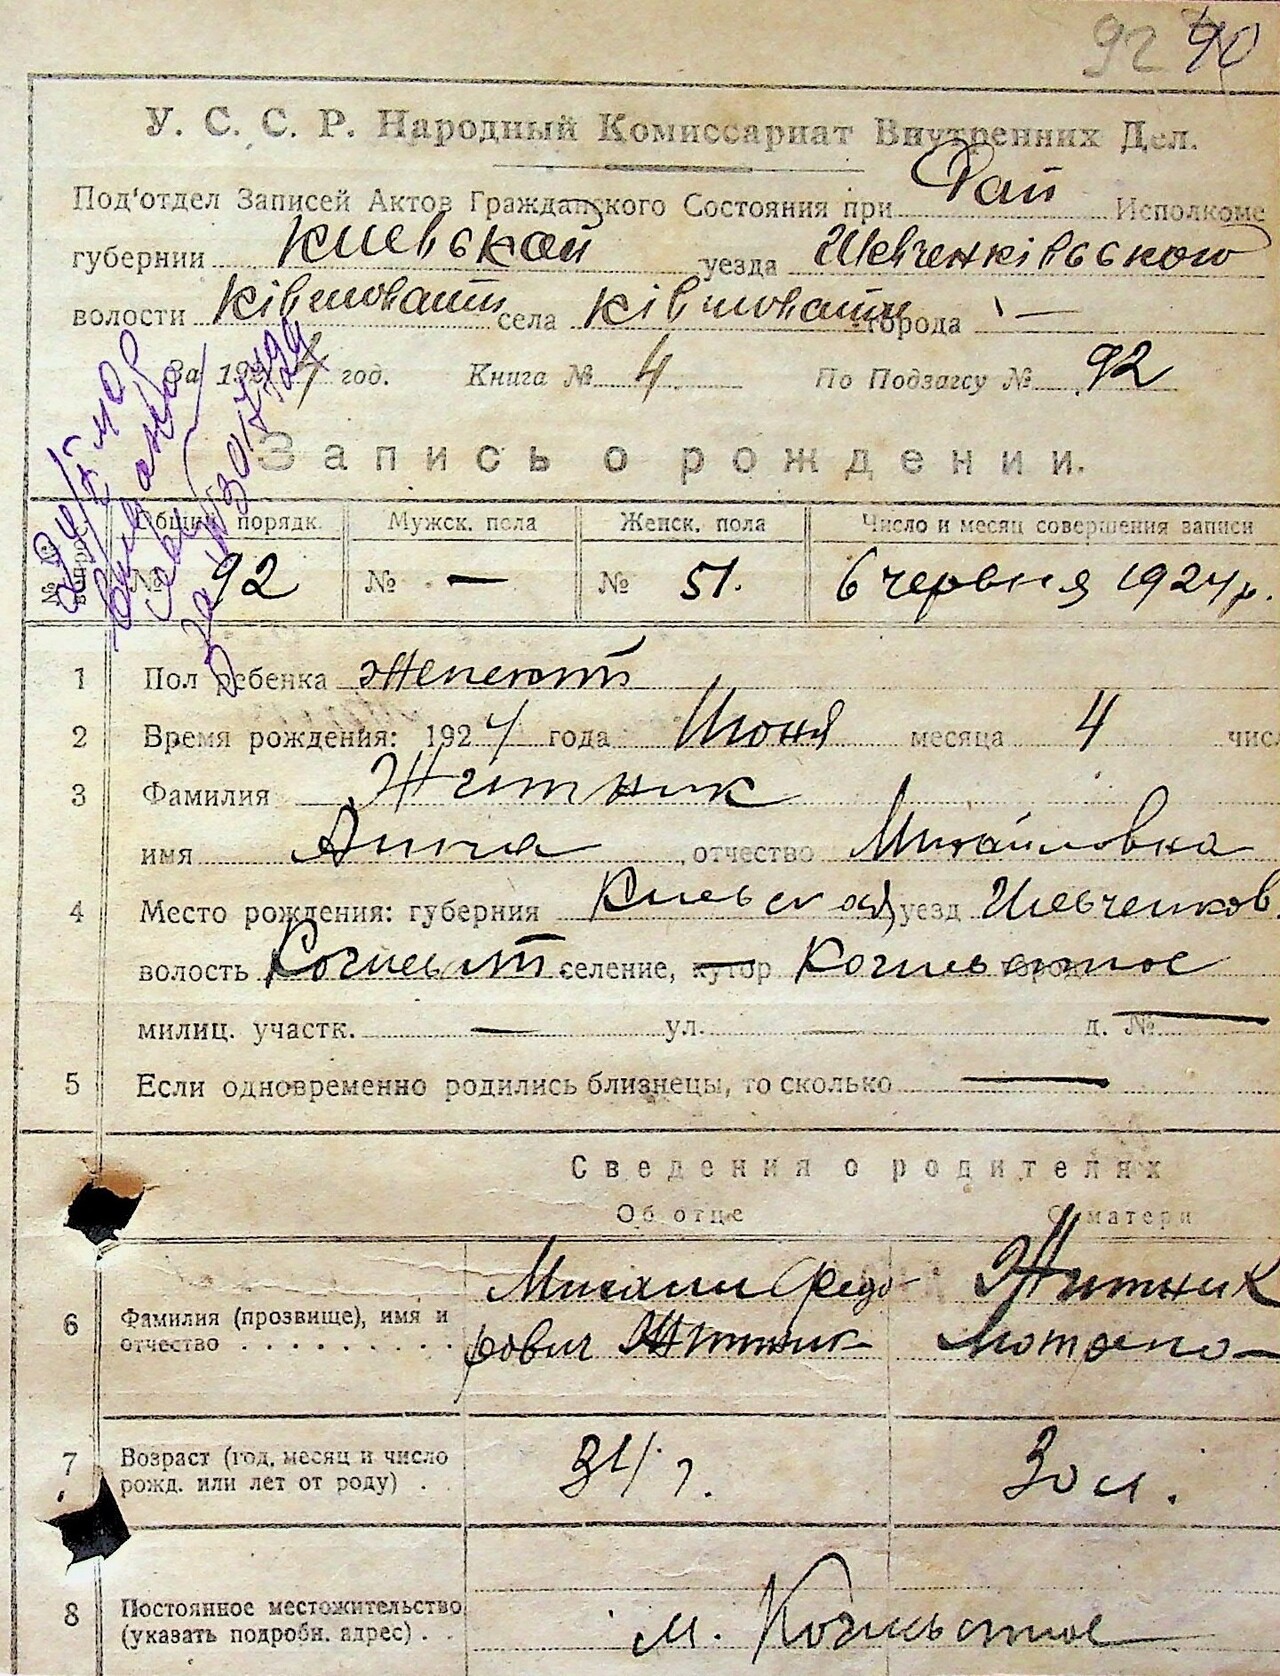 92 90
У. С. С. Р. Народный Комиссариат Внутренних Дел.
Под'отдел Записей Актов Гражданского Состояния при Рай Исполкоме
губернии Киевской уезда Шевченківського
волости Ківшовати села Ківшовати города —
За 1924 год. Книга № 4 По Подзагсу № 92
Запись о рождении.
Общий порядк. Мужск. пола Женск. пола Число и месяц совершения записи
№ 92 № — № 51. 6 червня 1924 р.
1 Пол ребенка
2 Время рождения: 1924 года Июня месяца 4 числ
3 Фамилия Житник
имя Анна отчество Михайловна
4 Место рождения: губерния Киевская уезд Шевченков.
волость селение, хутор
милиц. участк. — ул. — д. № —
5 Если одновременно родились близнецы, то сколько —
Сведения о родителях
Об отце О матери
6 Фамилия (прозвище), имя и Михаил Федо- Житник
отчество . . . . . . . . . . рович Житник
7 Возраст (год, месяц и число
рожд. или лет от роду) . . 31 г. 30 л.
8 Постоянное местожительство
(указать подробн. адрес) . . м.